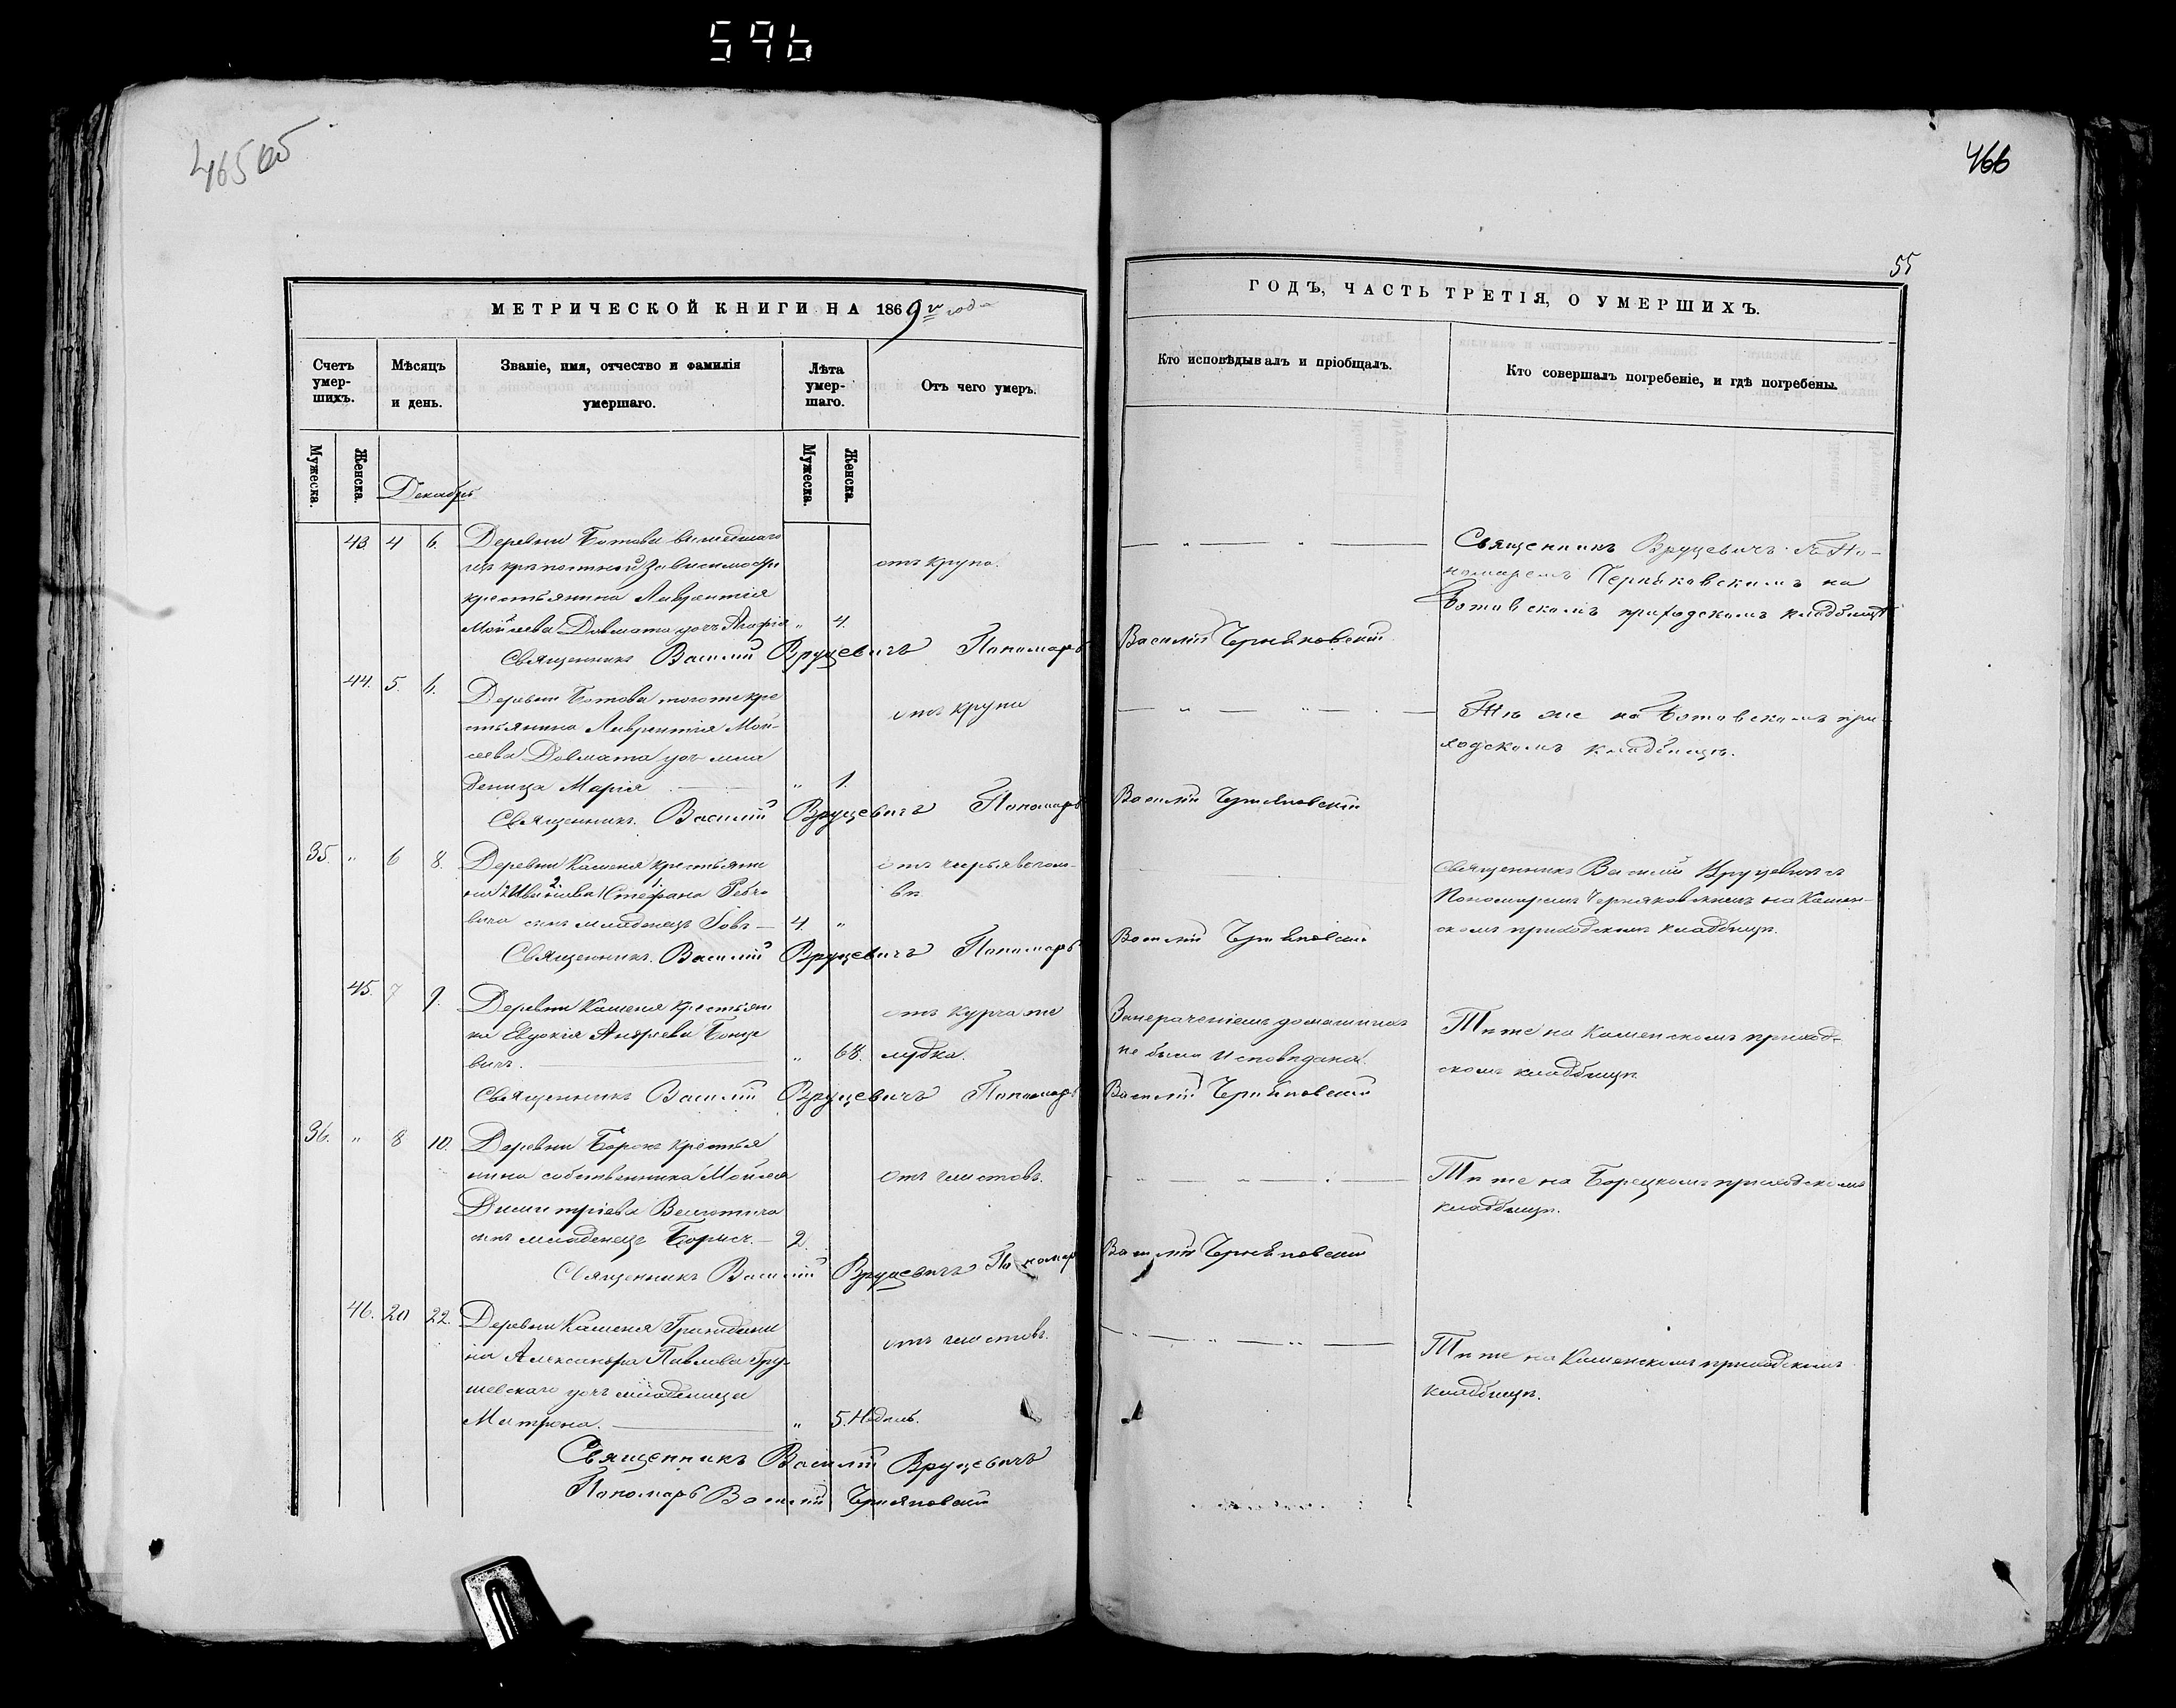 596
465 об
466
55
МЕТРИЧЕСКОЙ КНИГИ НА 1869 го года
ГОДЪ, ЧАСТЬ ТРЕТІЯ, О УМЕРШИХЪ.
Счетъ умер-шихъ.
Мѣсяцъ и день.
Званіе, имя, отчество и фамилія умершаго.
Лѣта умер-шаго.
Отъ чего умеръ.
Кто исповѣдывалъ и пріобщалъ.
Кто совершалъ погребеніе, и гдѣ погребены.
Мужеска.
Женска.
Мужеска.
Женска.
Декабрь
43 4 6. Деревни Ботова вышедшаго
изъ крѣпостной зависимости отъ крупа.
крестьянина Лаврентія
Мойсеева Довмата дочь Агафія „ 4.
Священникъ Вруцевичъ съ По-
номаремъ Черняковскимъ на
Ботовскомъ приходскомъ кладбищѣ
Священникъ Василій Вруцевичъ Пономарь Василій Черняковскій
44. 5. 6. Деревни Ботова тогоже кре
стьянина Лаврентія Мой- отъ крупа
сеева Довмата дочь мла
деница Марія „ 1.
Тѣ же на Ботовскомъ при-
ходскомъ кладбищѣ.
Священникъ Василій Вруцевичъ Пономарь Василій Черняковскій
35. „ 6 8. Деревни Каменя крестьяни
на Иванова Стефана
сынъ младенецъ Іовъ 4. „
отъ
Священникъ Василій Вруцевичъ съ
Пономаремъ Черняковскимъ на Камен-
скомъ приходскомъ кладбищѣ.
Священникъ Василій Вруцевичъ Пономарь Василій Черняковскій
45. 7 9. Деревни Каменя крестьян
ка Евдокія Андреева
вичъ. „ 68.
отъ
лудка.
домашнихъ
не была исповѣдана.
Тѣже на Каменскомъ приход-
скомъ кладбищѣ
Священникъ Василій Вруцевичъ Пономарь Василій Черняковскій
36. „ 8 10. Деревни Борокъ крестья
нина собственника Мойсея отъ глистовъ.
Димитріева
сынъ младенецъ Борисъ. 2.
Тѣже на Борецкомъ приходскомъ
кладбищѣ.
Священникъ Василій Вруцевичъ Пономарь Василій Черняковскій
46. 20 22. Деревни Каменя
на Александра Павлова Гру отъ глистовъ.
шевскаго дочь младеница
Матрона. „ 5. Недѣль.
Тѣже на Каменскомъ приходскомъ
кладбищѣ.
Священникъ Василій Вруцевичъ
Пономарь Василій Черняковскій